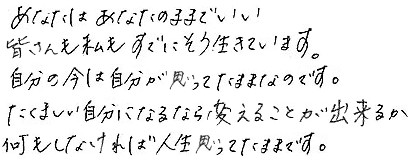 あなたは あなたのままでいい
皆さんも私も すでにそう生きています。
自分の今は自分が思ってたままなのです。
たくましい自分になるなら変えることが出来るか
何もしなければ人生思ってたままです。